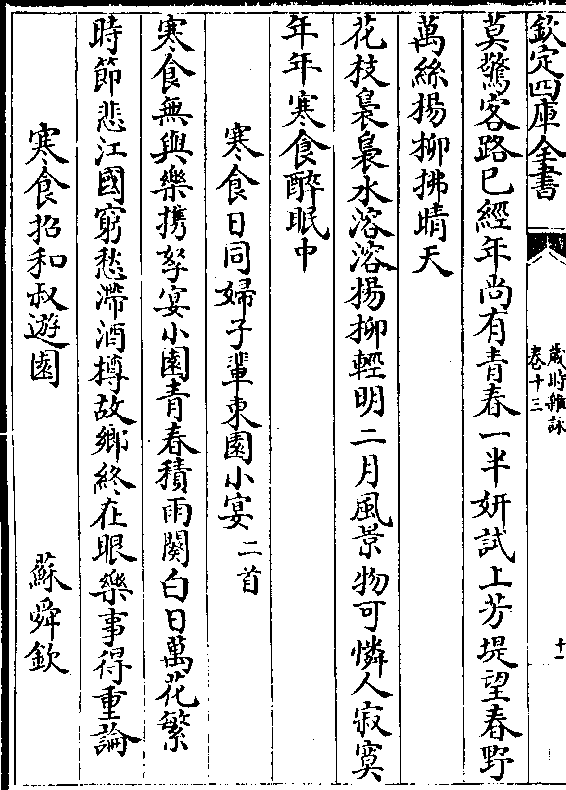 欽定四庫全書
歲時雜詠
卷十三
十一
莫驚客路已經年尚有青春一半妍試上芳堤望春野
萬絲揚柳拂晴天
花枝裊裊水溶溶揚柳輕明二月風景物可憐人寂寞
年年寒食醉眠中
寒食日同婦子輩東園小宴二首
寒食無與樂攜孥宴小園青春積雨闋白日萬花繁
時節悲江國窮愁滯酒撙故鄉終在眼樂事得重論
寒食招和叔遊園
蘇舜欽